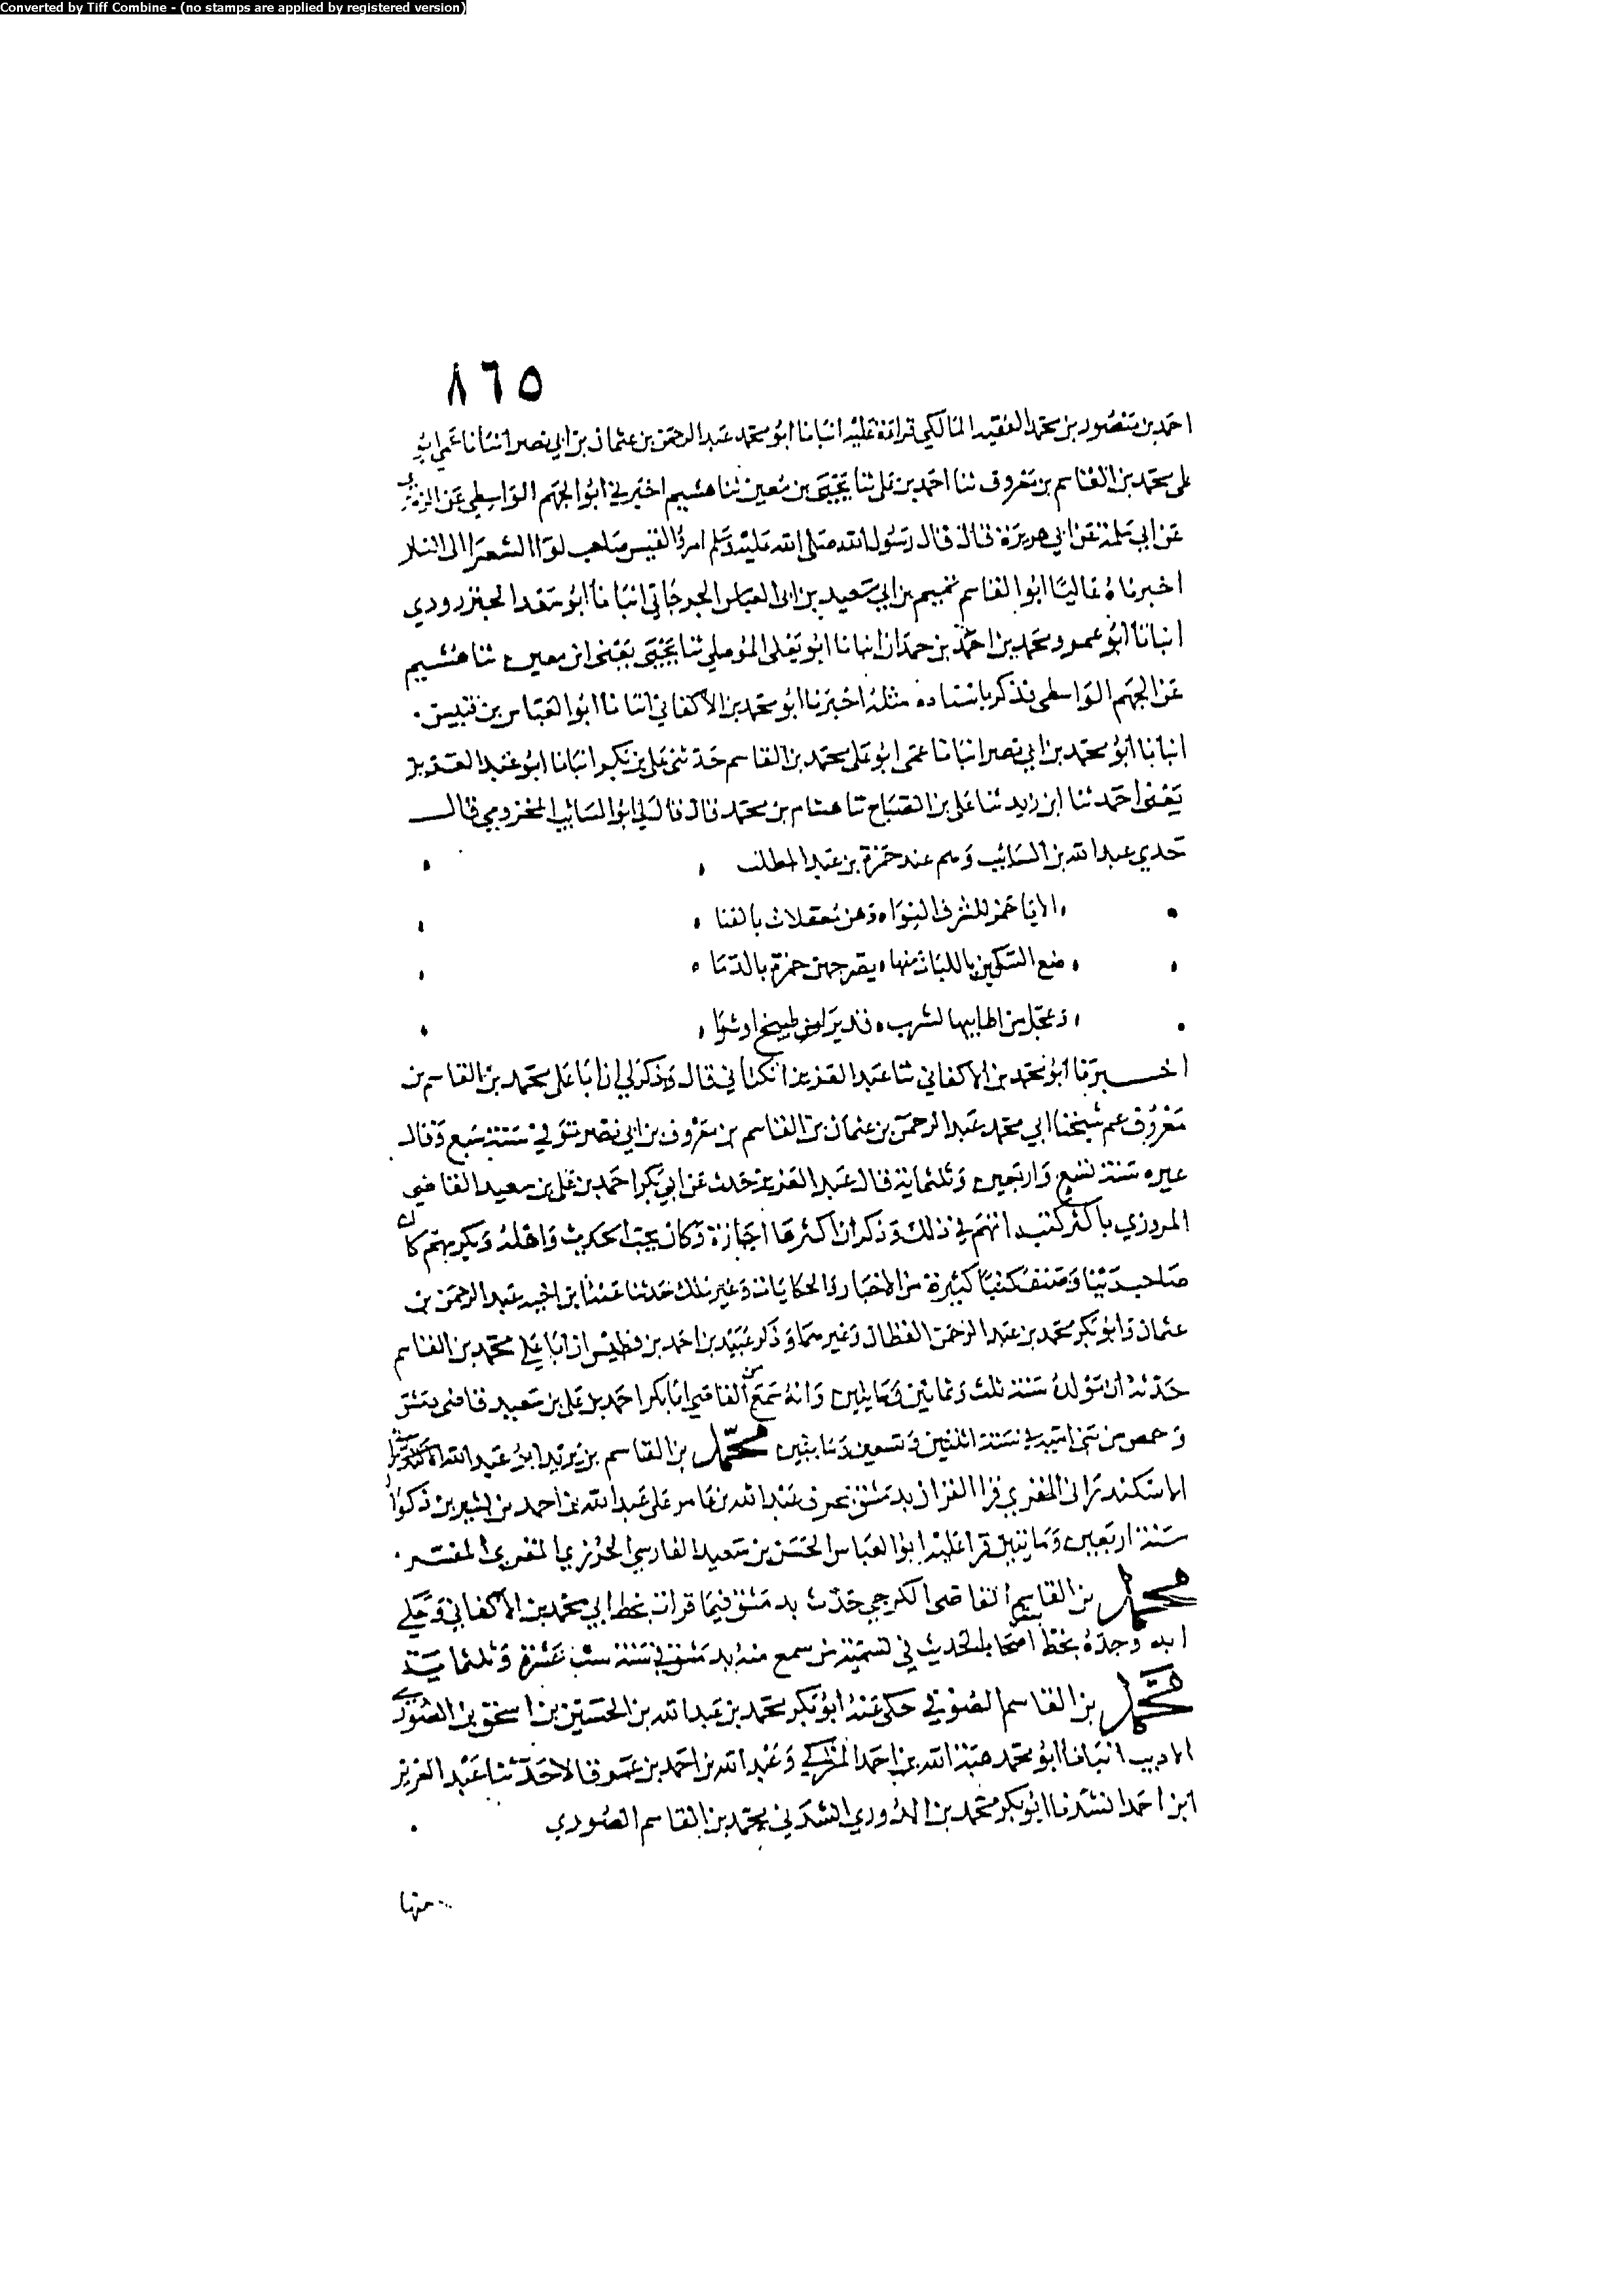 Converted by Tiff Combine - (no stamps are applied by registered version)
٨٦٥
احمد بن منصور بن محمد الفقيه المالكي قراءة عليه انبانا ابو محمد عبد الرحمن بن عثمان بن ابي نصر انبانا عمي ابو
علي محمد بن القاسم بن معروف ثنا احمد بن علي ثنا يحيى بن معين ثنا هشيم اخبرني ابو الجهم الواسطي عن الزهري
عن ابي سلمة عن ابي هريرة قال قال رسول الله صلى الله عليه وسلم امرؤ القيس صاحب لواا الشعرا الى النار
اخبرناه عاليا ابو القاسم تميم بن ابي سعيد بن ابى العباس الجرجاني انبانا ابو سعد الجنزرودي
انبانا ابو عمرو محمد بن احمد بن حمدان انبانا ابو يعلى الموصلي ثنا يحيى يعنى ابن معين ثنا هشيم
عن الجهم الواسطى فذكر باسناده مثله اخبرنا ابو محمد بن الاكفاني انبانا ابو العباس بن قبيس
انبانا ابو محمد بن ابي نصر انبانا عمى ابو على محمد بن القاسم حدثنى على بن بكر انبانا ابو عبد العزيز
يعنى احمد ثنا ابن زيد ثنا على بن الصباح ثنا هشام بن محمد قال قال لي ابو السائب المخزومي قال
جدي عبد الله بن السائب وهم عند حمزة بن عبد المطلب
الا يا حمز للشرف النواء وهن معقلات بالفنا
ضع السكين باللبات منها يضرجهن حمزة بالدما
وعجل من اطايبها لشرب قديرا من طبيخ او شوا
اخبرنا ابو محمد بن الاكفاني ثنا عبد العزيز الكتاني قال وذكر لي ان ابا على محمد بن القاسم بن
معروف عم شيخنا ابي محمد عبد الرحمن بن عثمان بن القاسم بن معروف بن ابي نصر توفي سنة سبع وقال
غيره سنة تسع واربعين وثلثماية قال عبد العزيز حدث عن ابي بكر احمد بن على بن سعيد القاضي
المروزي باكثر كتبه اتهم في ذلك وذكر ان اكثرها اجازة وكان يحب الحديث واهله ويكرمهم كان
صاحب دنيا وصنف كتبا كثيرة من الاخبار والحكايات وغير ذلك حدثنا عنه ابن اخيه عبد الرحمن بن
عثمان وابو بكر محمد بن عبد الرحمن القطان وغيرهما وذكر عبيد بن احمد بن فطيس ان ابا علي محمد بن القاسم
حدثه ان مولده سنة ثلث وثمانين ومايتين وانه سمع من القاضي ابا بكر احمد بن على بن سعيد قاضى دمشق
وحمص من بني امية في سنة اثنتين وتسعين ومايتين محمد بن القاسم بن يزيد ابو عبد الله
الاسكندراني المقري قرا القران بدمشق بحرف عبد الله بن عامر على عبد الله بن احمد بن بشير بن ذكوان
سنة اربعين ومايتين قرا عليه ابو العباس الحسن بن سعيد الفارسي المقري المفسر
محمد بن القاسم القاضى الكرجي حدث بدمشق فيما قرات بخط ابي محمد بن الاكفاني وحكى
انه وجده بخط اصحاب الحديث في تسمية من سمع منه بدمشق في سنة ست عشرة وثلثماية
محمد بن القاسم الصوفي حكى عنه ابو بكر محمد بن عبد الله بن الحسين بن اسحق بن الصوري
الاديب انبانا ابو محمد هبة الله بن احمد المزكي وعبد الله بن احمد بن عمر قالا حدثنا عبد العزيز
ابن احمد انشدنا ابو بكر محمد بن الدوري انشدني محمد بن القاسم الصوري
منها